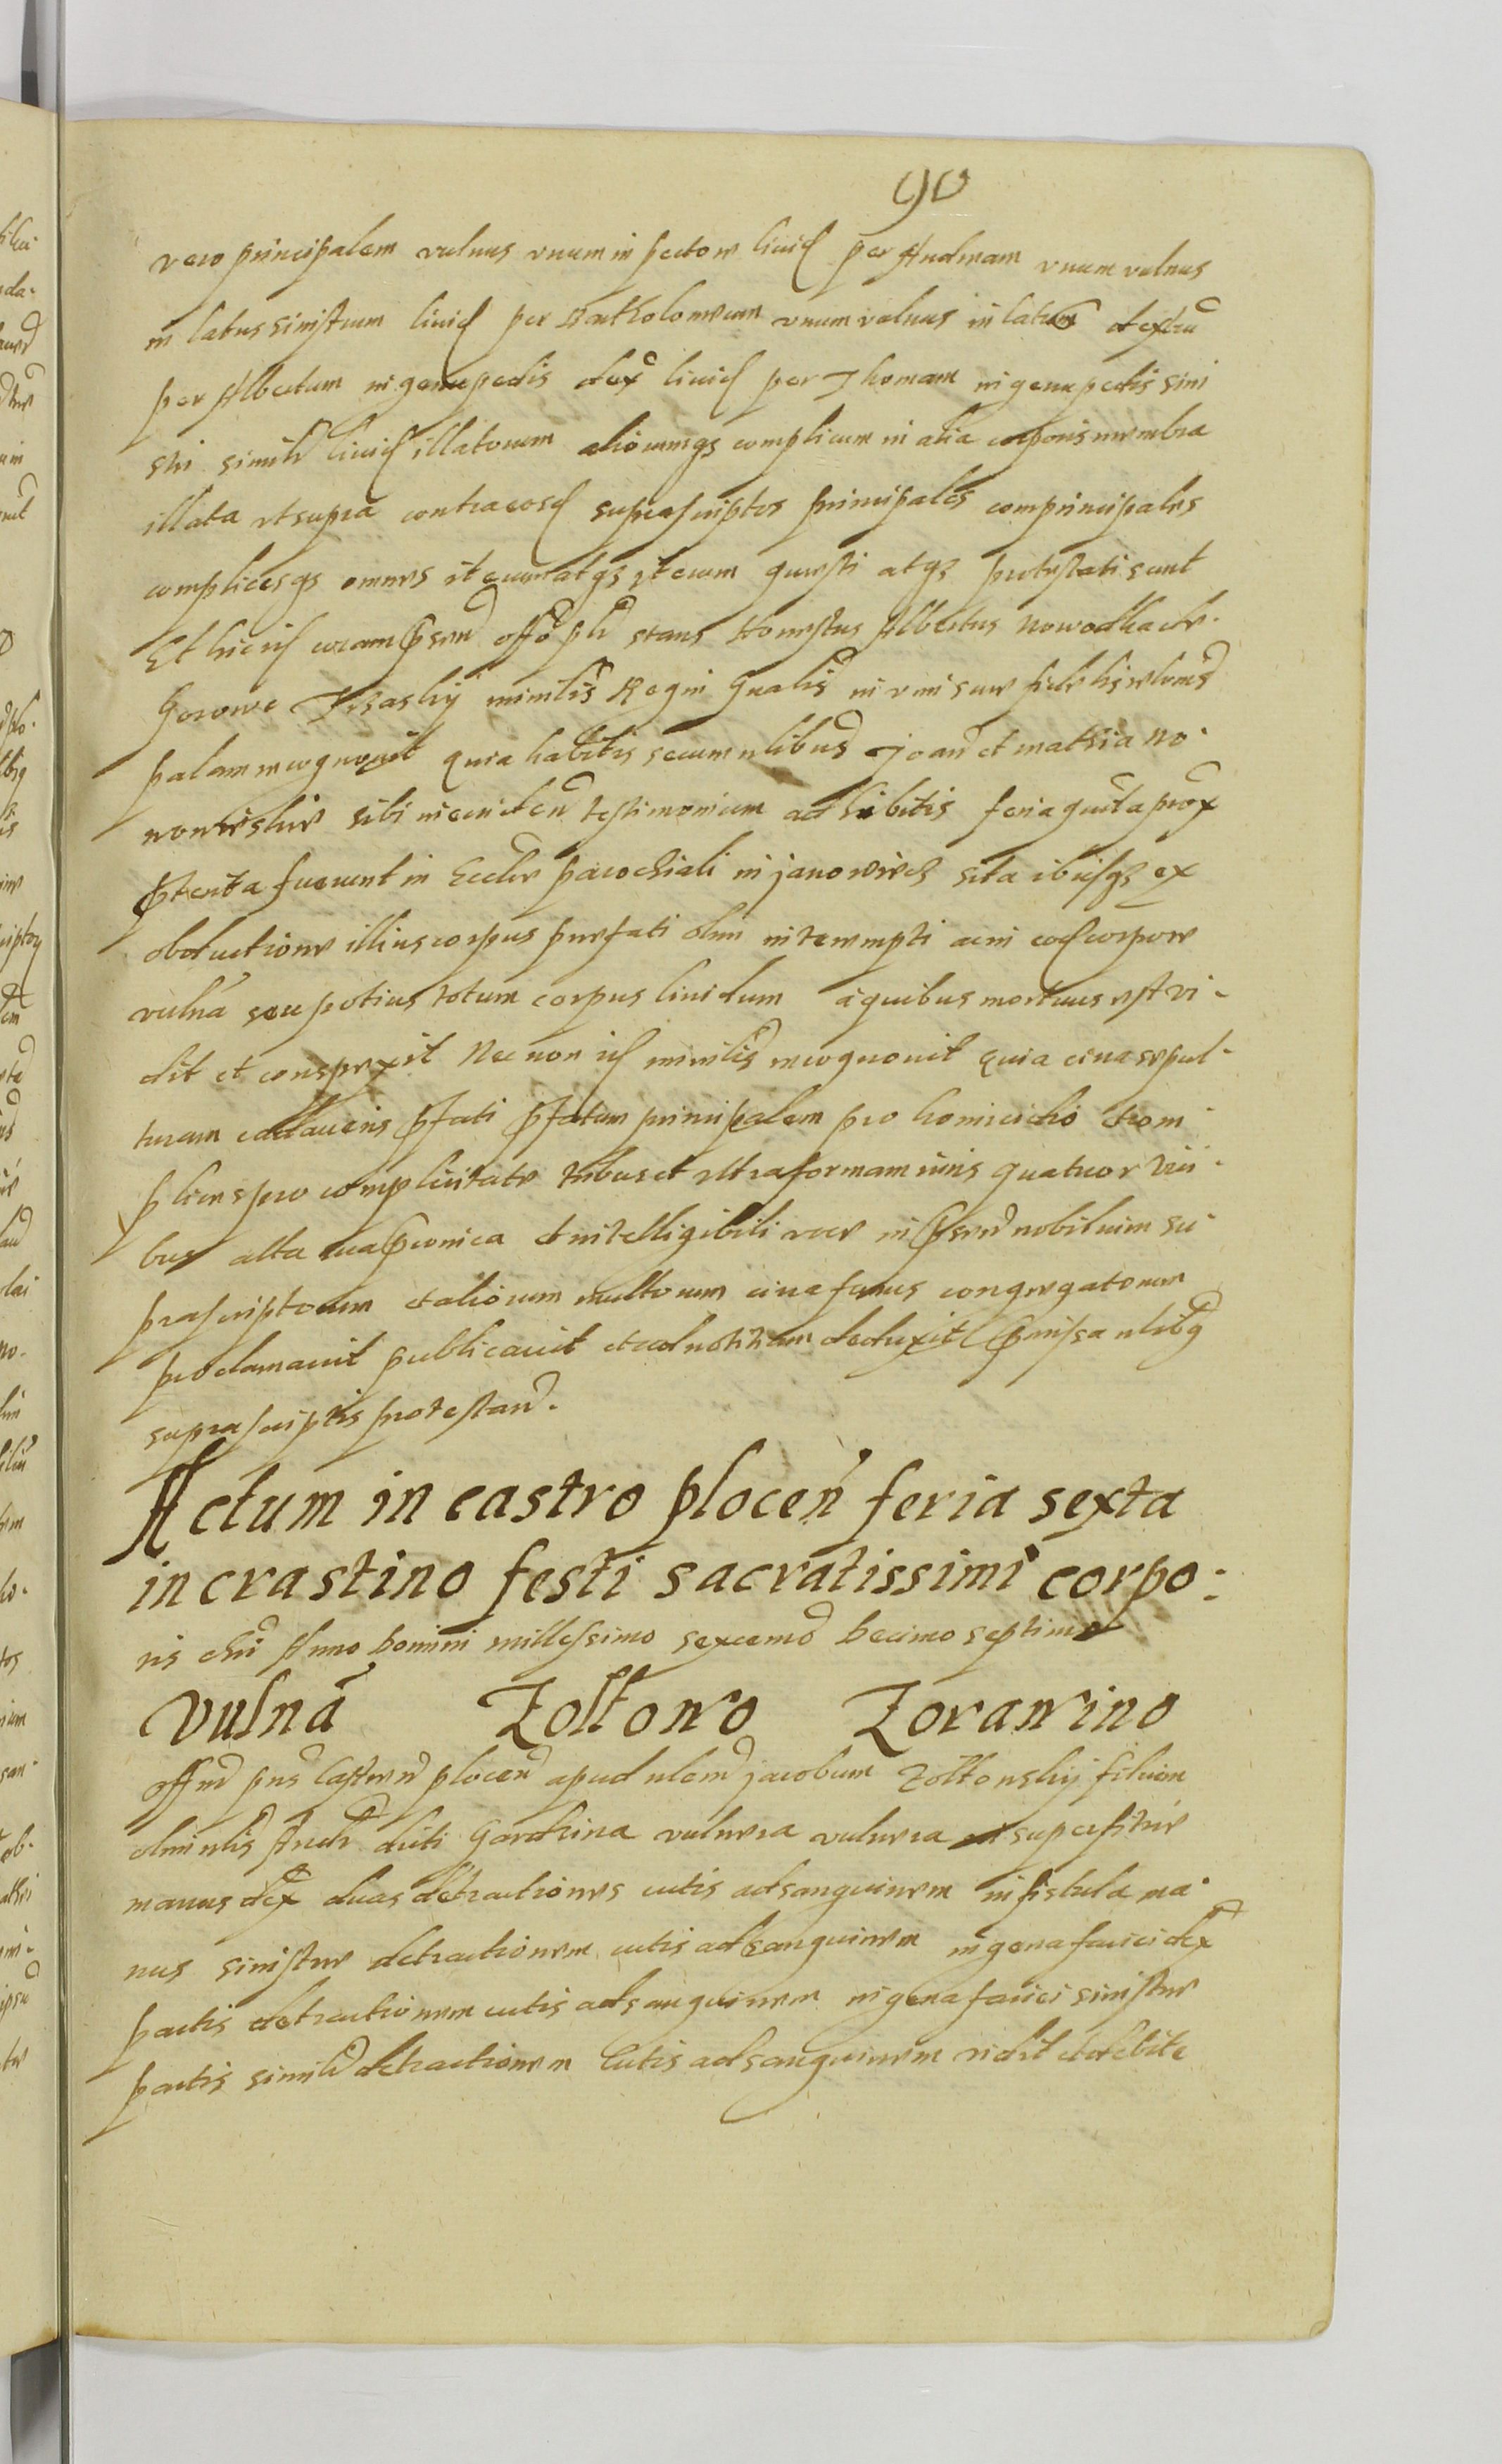 90
vero principalem vulnus unum in pectore livid per Andream unum vulnus
in latus sinistrum livid per Bartholomeum unum vulnus in latus dextrũ
per Albertum in genu pedis dex livid per Thomam in genu pedis sini
stri simil livid illatorum aliorumq3 complicum in alia corporis membra
illata ut supra contra eosd suprascriptos principales comprincipales
complicesq3 omnes iterum atq3 iterum questi atq3 protestati sunt
Et hic id coram offo stans Honestus Albertus
Gorowe minilis Regni Gnalis in vim sue fidelis
palam recognovit quia habitis secum nlibus Joane et Mathia no-
sibi in testimonium adhibitis feria prox
pterita fuerunt in Ecclie parochiali in janowiecz sita ibidq3 ex
obductione illius corpus prefati olim interempti ac in eod corpore
vulna seu potius totum corpus lividum a quibus mortuus est vi-
dit et conspexit Nec non id minilis recognovit quia circa sepul-
turam cadaveris pfati pfatum principalem pro homicidio et com-
plices pro complicitate tribus et ultra formam iuris quatuor vici-
bus alta et intelligibili voce in psen nobilium su-
prascriptorum et aliorum multorum circa funus congregatorum
proclamavit publicavit et ad notitiam deduxit pmissa nlibq
suprascriptis protestan.
Actum in castro plocen feria sexta
in crastino festi sacratissimi corpo-
ris chri Anno Domini millessimo sexcemo Decimo septimo
Vulna Zoltowo Zorawino
offm pns Castren plocen apud nlem jacobum Zoltowskij filium
olim nlis Andr dicti Gardzina vulnera vulnera in superficie
manus dex duas detractiones cutis ad sanguinem in fistula ma-
nus sinistre detractionem cutis ad sanguinem in gena faciei dex
partis detractionem cutis ad sanguinem in gena faciei sinistre
partis simil detractionem Cutis ad sanguinem vidit et debite